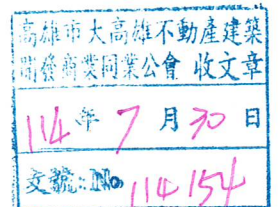 高雄市大高雄不動產建築
開發商業同業公會 收文章
114年7月30日
文號：No 114154